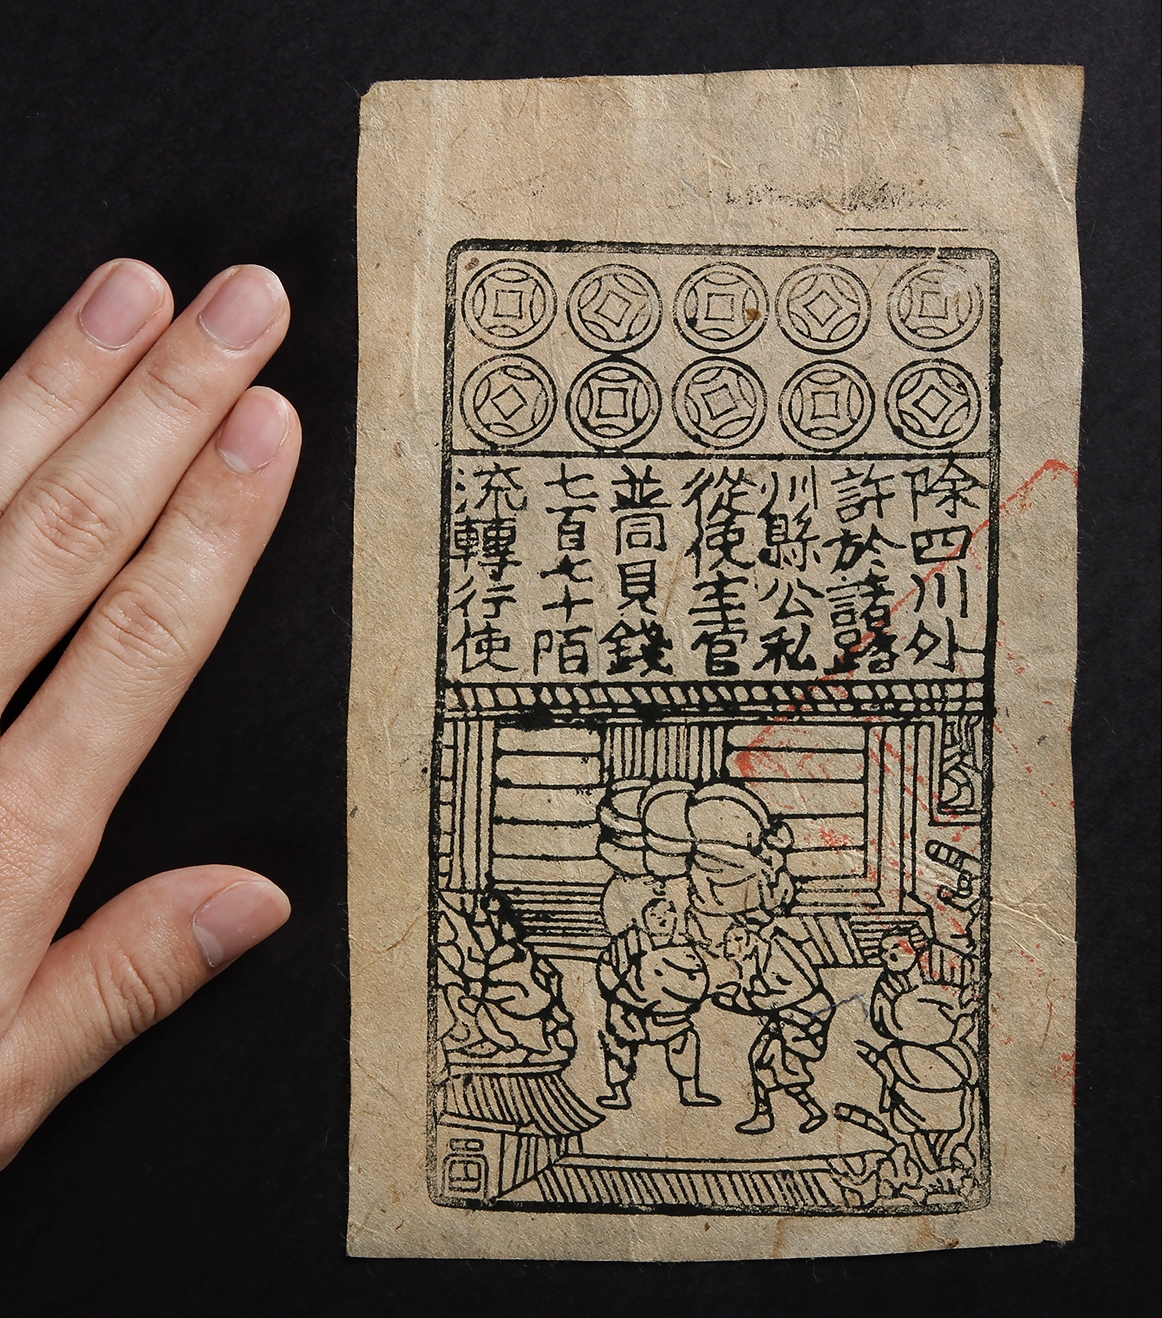 除四川外
許於諸路
川縣公私
從使圭官
並同貝錢
七百七十陌
流轉行使